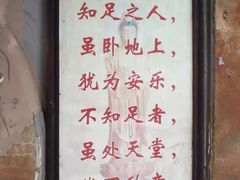 知足之人，
虽卧地上，
犹为安乐，
不知足者，
虽处天堂，